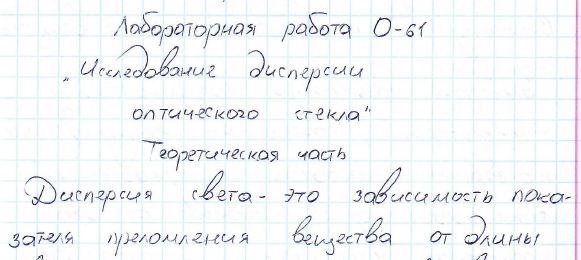 Лабораторная работа О-61
„Исследование дисперсии
оптического стекла"
Теоретическая часть
Дисперсия света - это зависимость пока-
зателя преломления вещества от длины